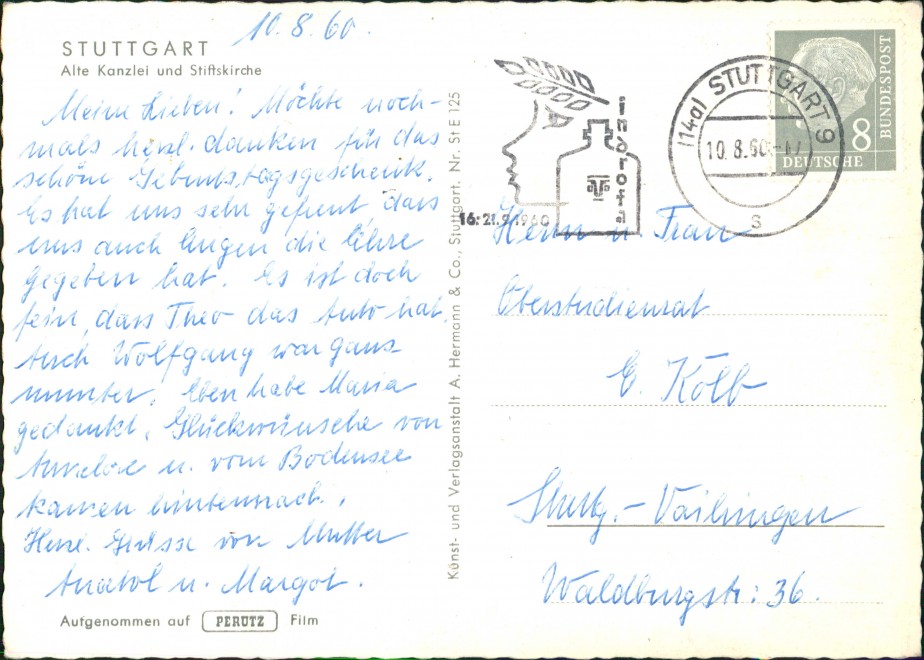 10.8.60.
STUTTGART
Alte Kanzlei und Stiftskirche
Meine Lieben! Möchte noch-
mals herzl. danken für das
schöne Geburtstagsgeschenk.
Es hat uns sehr gefreut dass
uns auch Eugen die Ehre
gegeben hat. Es ist doch
fein, dass Theo das Auto hat.
Auch Wolfgang war ganz
munter. Eben habe Maria
gedankt. Glückwünsche von
Annelore u. vom Bodensee
kamen hintennach.
Herzl. Grüsse von Mutter
Anatol u. Margot.
Aufgenommen auf PERUTZ Film
Kunst- und Verlagsanstalt A. Hermann & Co., Stuttgart. Nr. St E 125
16.-21.9.1960
interotha
(14a) STUTTGART 9
10.8.60.-17
s
8
DEUTSCHE
BUNDESPOST
Herrn u. Frau
Oberstudienrat
E. Kölb
Stuttg.-Vaihingen
Waldburgstr. 36.